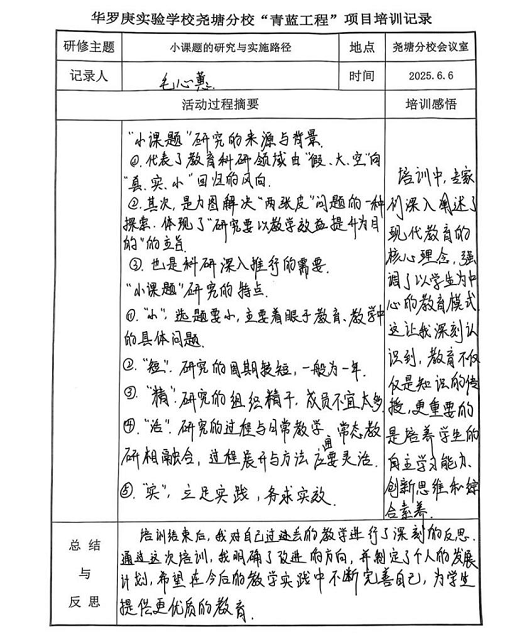 华罗庚实验学校尧塘分校“青蓝工程”项目培训记录
研修主题 小课题的研究与实施路径 地点 尧塘分校会议室
记录人 毛心 时间 2025.6.6
活动过程摘要 培训感悟
“小课题”研究的来源与背景.
①.代表了教育科研领域由“假、大、空”向
“真、实、小”回归的风向.
②.其次,是力图解决“两张皮”问题的一种
探索.体现了“研究要以教学效益提升为目
的”的立旨.
③.也是科研深入推行的需要.
“小课题”研究的特点.
①.“小”.选题要小,主要着眼于教育、教学中
的具体问题.
②.“短”.研究的周期较短,一般为一年.
③.“精”.研究的组织精干,成员不宜太多
④.“活”.研究的过程与日常教学、常态教
研相融合,过程展开与方法应要灵活.
⑤.“实”,立足实践,务求实效.
培训中,专家
们深入阐述了
现代教育的
核心理念,强
调了以学生为中
心的教育模式.
这让我深刻认
识到,教育不仅
仅是知识的传
授,更重要的
是培养学生的
自主学习能力、
创新思维和综
合素养.
总结
与
反思
培训结束后,我对自己过去的教学进行了深刻的反思.
通过这次培训,我明确了改进的方向,并制定了个人的发展
计划,希望在今后的教学实践中不断完善自己,为学生
提供更优质的教育.